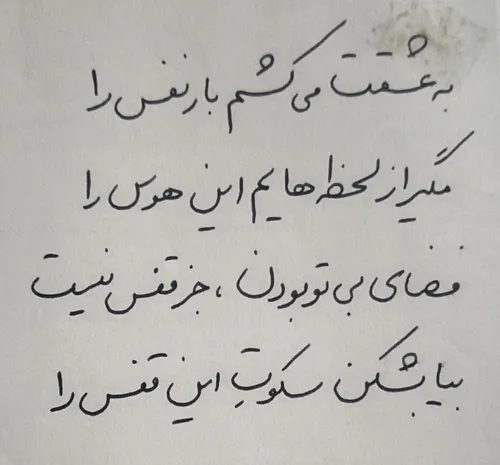 به عشقت می کشم بار نفس را
مگیر از لحظه هایم این هوس را
فضای بی تو بودن ، جز قفس نیست
بیا بشکن سکوتِ این قفس را